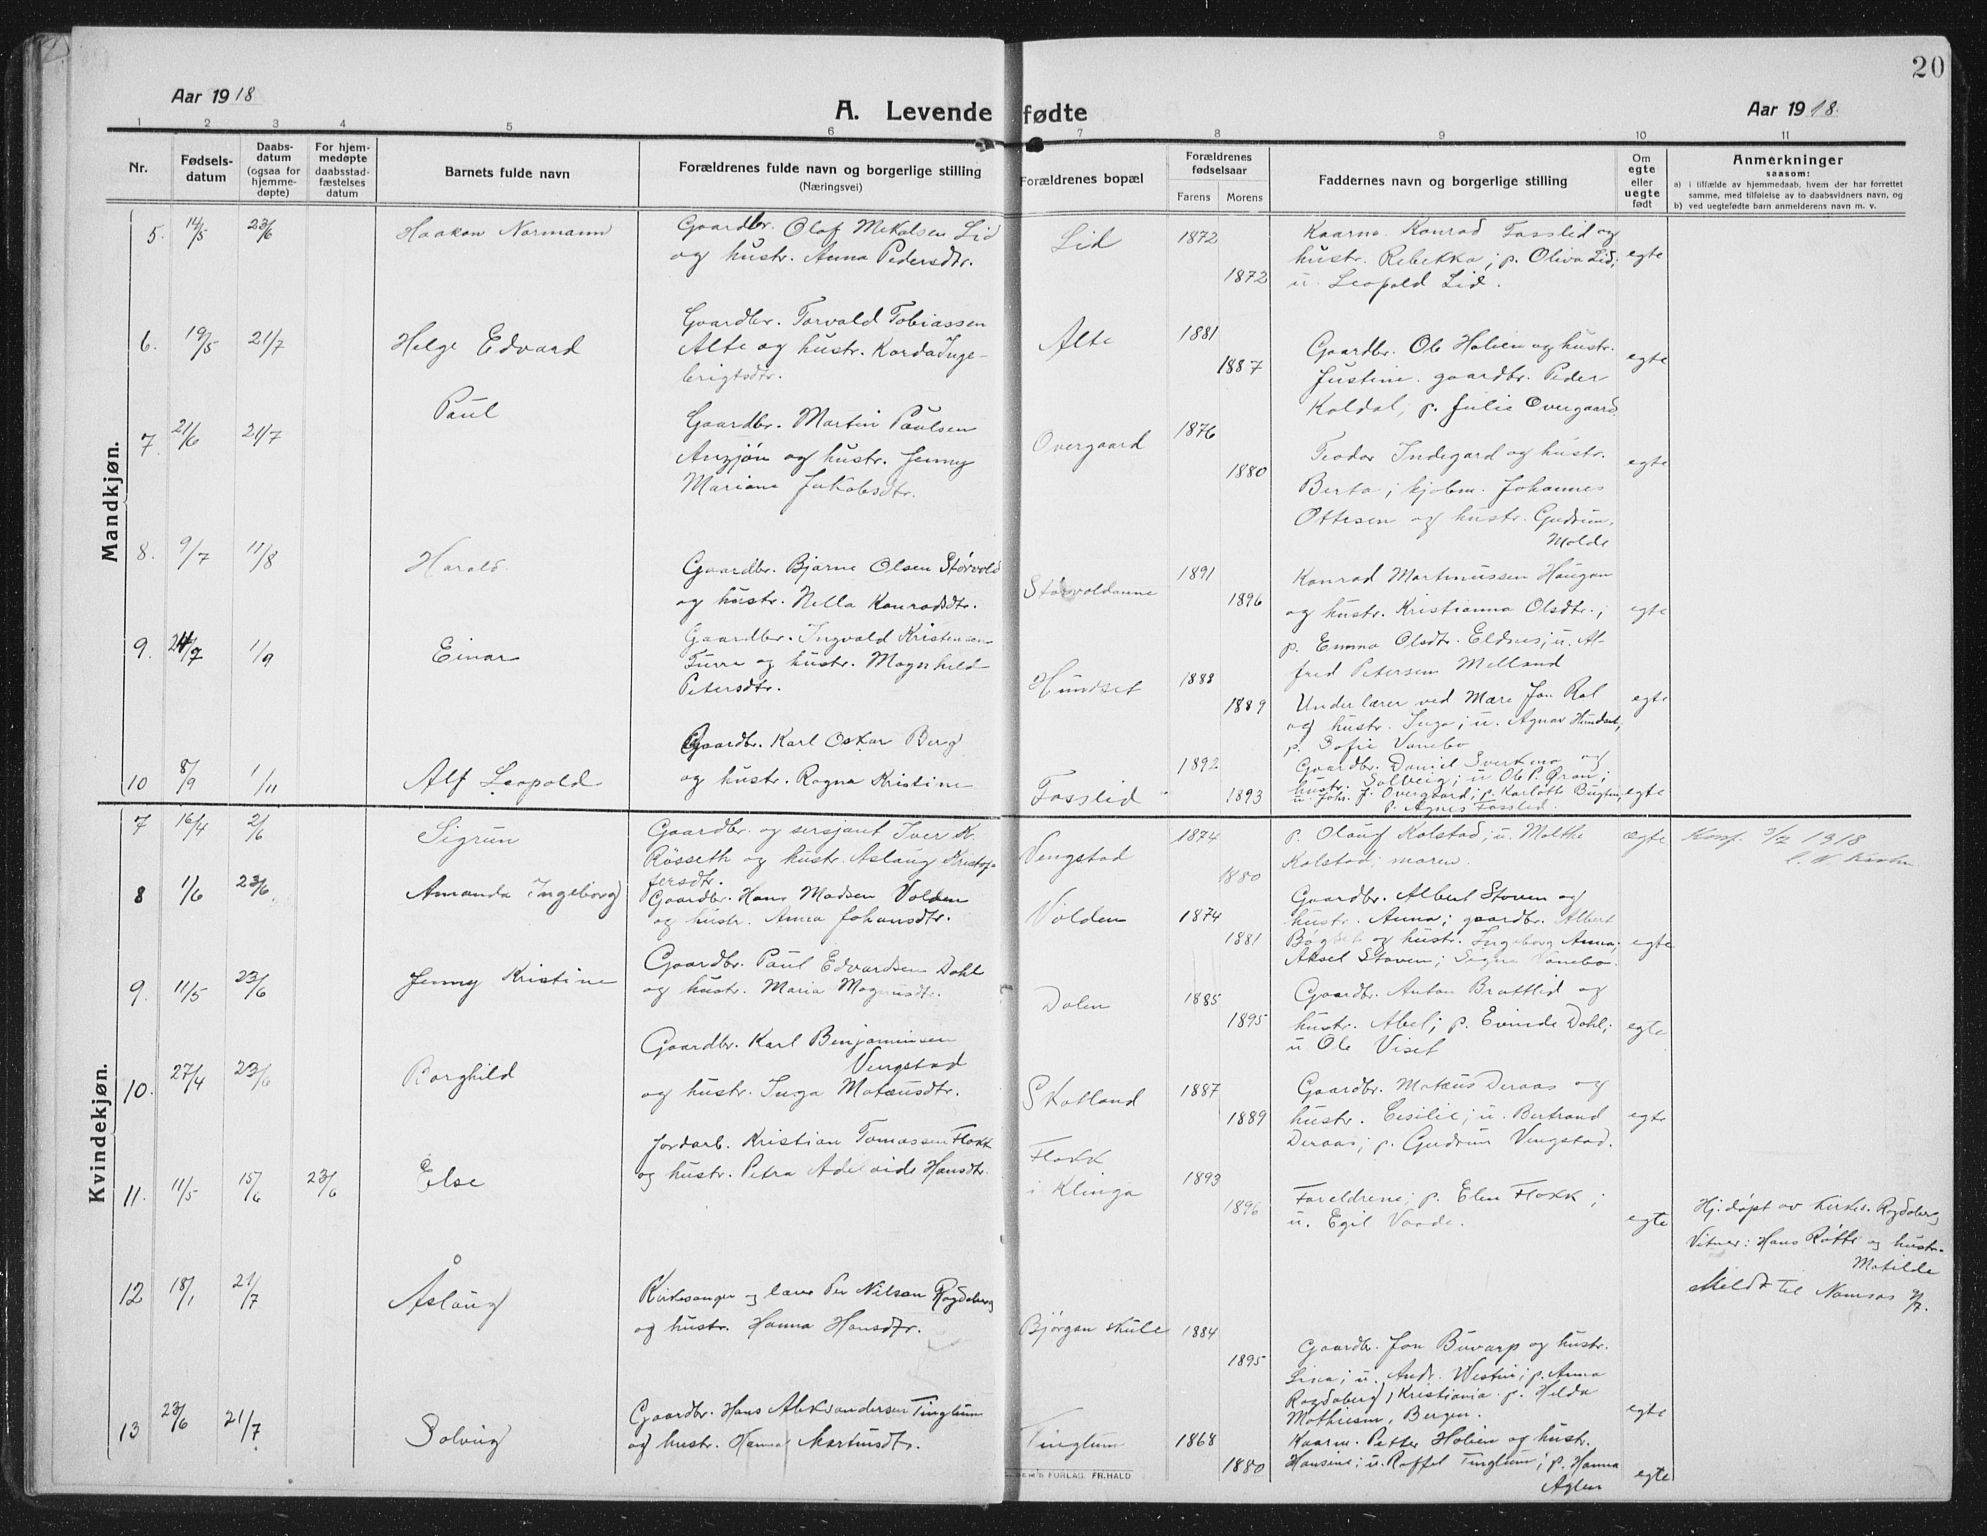 20
Aar 1918
A. Levende fødte
Aar 1918.
1 2 3 4 5 6 7 8 9 10 11
Nr.
Fødsels-
datum
Daabs-
datum
(ogsaa for
hjemme-
døpte)
For hjem-
medøpte
daabsstad-
fæstelses
datum
Barnets fulde navn
Forældrenes fulde navn og borgerlige stilling
(Næringsvei)
Forældrenes bopæl
Forældrenes
fødselsaar
Farens Morens
Faddernes navn og borgerlige stilling
Om
egte
eller
uegte
født
Anmerkninger
saasom:
a) i tilfælde av hjemmedaab, hvem der har forrettet
samme, med tilføielse av to daabsvidners navn, og
b) ved uegtefødte barn anmelderens navn m. v.
Mandkjøn.
5. 14/5 23/6 Haakon Normann
Gaardbr. Olaf Mekalsen Lid
og hustr. Anna Pedersdtr.
Lid 1872 1872
Kaarm. Konrad Fosslid og
hustr. Rebekka; p. Oliva Lid;
u. Leopold Lid.
egte
6. 19/5 21/7 Helge Edvard
Gaardbr. Torvald Tobiassen
Alte og hustr. Korda Inge-
brigtsdtr.
Alte 1881 1887
Gaardbr. Ole Holien og hustr.
Justine. gaardbr. Peder
Koldal; p. Julie Overgaard.
egte
7. 21/6 21/7 Paul
Gaardbr. Martin Paulsen
Anzjøn og hustr. Jenny
Mariane Jakobsdtr.
Overgaard 1876 1880
Teodor Indegard og hustr.
Berta; kjøbm. Johannes
Ottesen og hustr. Gudrun,
Molde
egte
8. 9/7 11/8 Harald
Gaardbr. Bjarne Olsen Størvold
og hustr. Nella Konradsdtr.
Størvoldaune 1891 1896
Konrad Martinussen Haugan
og hustr. Kristianna Olsdtr.;
p. Emma Olsdtr. Eldnes; u. Al-
fred Petersen Melland
egte
9. 24/7 1/9 Einar
Gaardbr. Ingvald Kristensen
Furre og hustr. Magnhild
Petersdtr.
Hundset 1888 1889
Underlærer ved Mære Jon Rol
og hustr. Inga; u. Agnar Hundset,
p. Sofie Vanebo
egte
10 8/9 1/11 Alf Leopold
Gaardbr. Karl Oskar Berg
og hustr. Ragna Kristine
Fosslid 1892 1893
Gaardbr. Daniel og
hustr. Solveig; u Ole P. Grøn;
u. Joh. J. Overgaard; p. Karlotte
p. Agnes Fosslid.
egte
Kvindekjøn.
7 16/4 2/6 Sigrun
Gaardbr. og sersjant Iver K.
Røsseth og hustr. Aslaug Kristof-
fersdtr.
Vengstad 1874 1880
p. Olaug Kolstad; u. Malthe
Kolstad; moren.
ægte
Konf. 1918
8 1/6 23/6 Amanda Ingeborg
Gaardbr. Hans Madsen Volden
og hustr. Anna Johansdtr.
Volden 1874 1881
Gaardbr. Albert Stoven og
hustr. Anna; gaardbr. Albert
Bøgset og hustr. Ingeborg Anna;
Aksel Stoven; Signe Vanebo.
egte
9. 11/5 23/6 Jenny Kristine
Gaardbr. Paul Edvardsen Dahl
og hustr. Maria Magnusdtr.
Dalen 1885 1895
Gaardbr. Anton Brattlid og
hustr. Abel; p. Evinde Dahl;
u. Ole Viset
egte
10. 27/4 23/6 Borghild
Gaardbr. Karl Benjaminsen
Vengstad
og hustr. Inga Mateusdtr.
Skatland 1887 1889
Gaardbr. Mateus Deraas og
hustr. Cesilie; u. Bertrand
Deraas; p. Gudrun Vengstad.
egte
11. 11/5 15/6 23/6 Else
Jordarb. Kristian Tomassen Flakk
og hustr. Petra Adelaide Hansdtr.
Flakk
i Klinga
1893 1896
Foreldrene; p. Elen Flakk;
u. Egil Vaade.
egte
Hj. døpt av kirkes. Rogdaberg
Vitner: Hans Røtte og hustr.
Matilde
Meldt til Namsos
12 18/1 21/7 Åslaug
Kirkesanger og lærer Per Nilsen Rogdaberg
og hustr. Hanna Hansdtr.
Bjørgan skule 1884 1895
Gaardbr. Jon Buvarp og hustr.
Lisa; u. Andr. Westin; p. Anna
Rogdaberg, Kristiania. p. Helda
Mathiesen, Bergen.
egte
13 23/6 21/7 Solvug
Gaardbr. Hans Aleksandersen Tinglum
og hustr. Hanna Martinsdtr.
Tinglum 1868 1880
Kaarm. Petter Holien og hustr.
Hansine; u. Roffel Tinglum; p. Hanna
Aglen
egte
FORLAG. FR. HALD